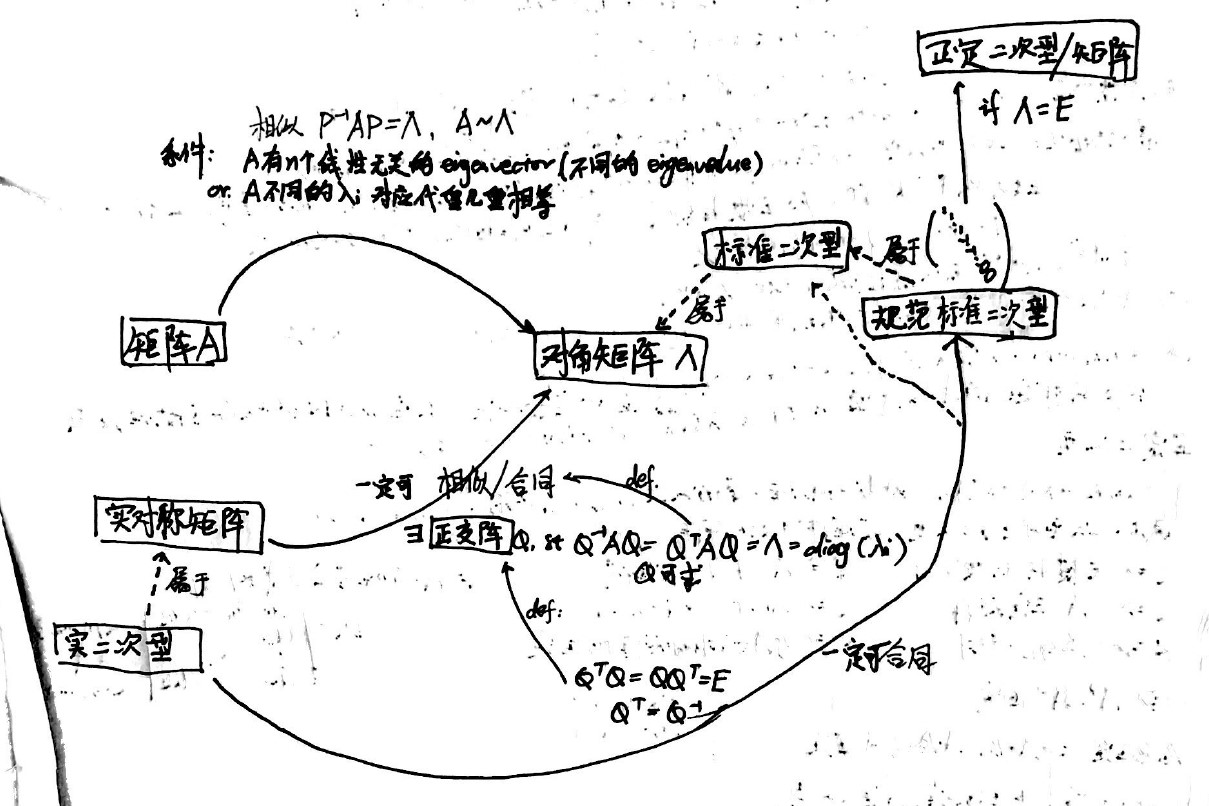 正定二次型/矩阵
if Λ=E
相似 P⁻¹AP=Λ, A~Λ
条件: A有n个线性无关的 eigenvector(不同的 eigenvalue)
or A不同的λi 对应代重几重相等
标准二次型
属于
规范标准二次型
属于
矩阵A
对角矩阵 Λ
一定可 相似/合同
def.
实对称矩阵
∃正交阵Q, st Q⁻¹AQ= QᵀAQ=Λ=diag(λi)
Q可求
属于
def:
实二次型
一定可合同
QᵀQ=QQᵀ=E
Qᵀ=Q⁻¹